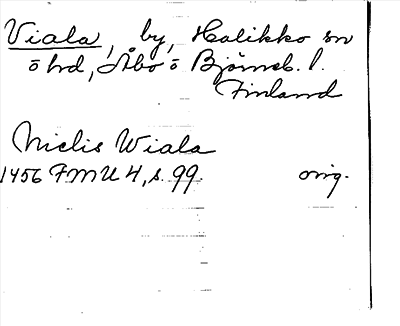 Viala, by, Halikko sn
o hd, Åbo o Björneb. l.
Finland
Niclis Wiala
1456 FMU 4, s. 99. orig.